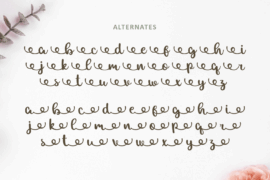 ALTERNATES
a b c d e e f g h i
j k l e m n o o p q r
r s t u v w x y z
a b c d e f g h i e
j o k l m n o p q r o
s t u v w x y z